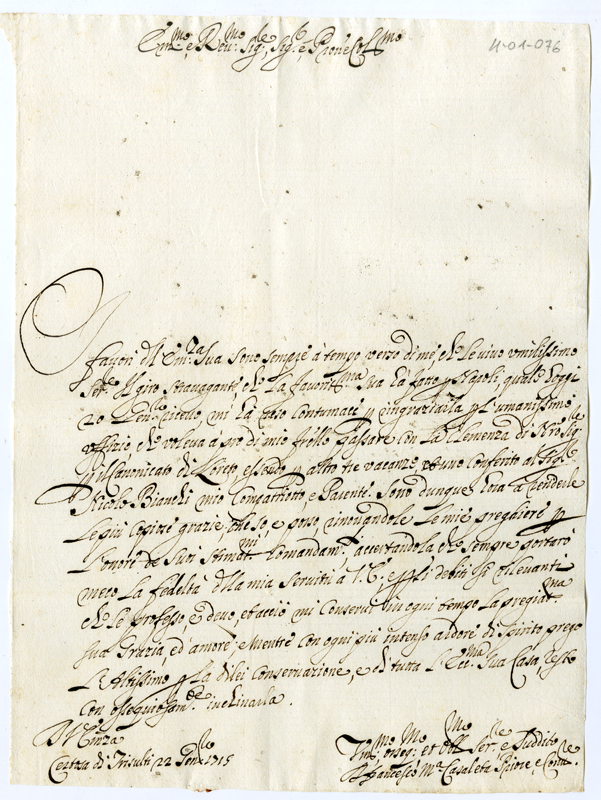 Em.mo e Rev.mo Sig.re Sig.r e Pron'e Col.mo
4-01-076
I favori dell'Em.za Sua sono sempre à tempo verso di me, che le vivo umilissimo
Ser.re Il giro stravagante, che la favorit.ma Sua hà fatto p Napoli, quale hoggi
20 ricevo, mi hà reso contumace p ringratiarla p l'umanissimo
offizio, che voleva à prò di mio fr̃ello Gassare con la Clemenza di Nr̃o Sig.re
p il Canonicato di Loreto, essendo p altro tre vacanze, et uno conferito al Sig.r
Nicolò Bianchi mio Compatriotto, e Parente. Sono dunque hora a renderle
le più copiose grazie, che so, e posso rinovandole le mie preghiere p
l'onore de suoi stimat.mi Comandam.ti accertandola che sempre portarò
meco la fedeltà della mia servitù a V.E. p gli debiti sì rilevanti
che le professo, e devo, et acciò mi conservi in ogni tempo la pregiat.ma
sua grazia, ed amore; Mentre con ogni più intenso ardore di spirito prego
l'Altissimo p la di lei conservazione, e di tutta l'Ecc.ma Sua Casa, resto
con ossequiosam.te inclinarla.
D V Em̃za
Certosa di Trisulti 22 Gen.ro 1715
Um.mo Oseq.mo et Obl.mo Ser.re e Suddito
D Francesco M.a Casaleta Priore, e Con.re